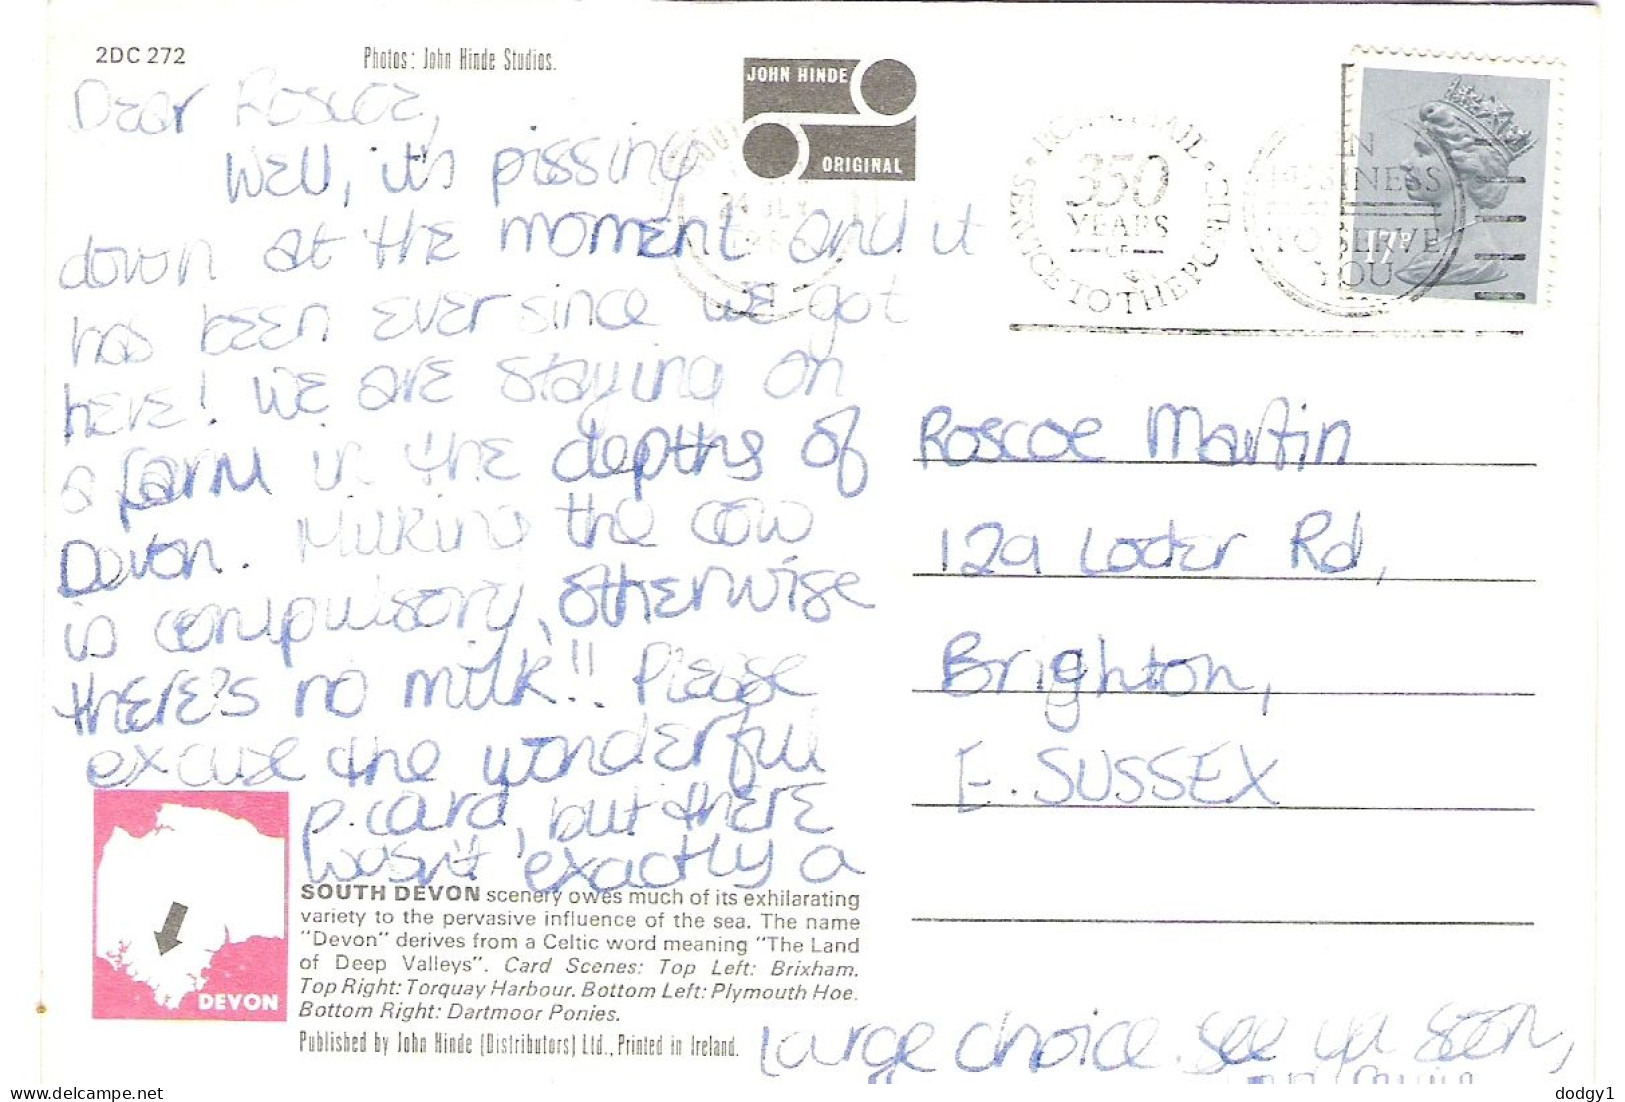 2DC 272
Photos: John Hinde Studios.
JOHN HINDE
ORIGINAL
Dear Roscoe,
Well, it's pissing
down at the moment and it
has been ever since we got
here! We are staying on
a farm in the depths of
Devon. Milking the cow
is compulsory, otherwise
there's no milk!! Please
excuse the wonderful
p.card, but there
wasn't exactly a
large choice. See ya soon,
SOUTH DEVON scenery owes much of its exhilarating
variety to the pervasive influence of the sea. The name
"Devon" derives from a Celtic word meaning "The Land
of Deep Valleys". Card Scenes: Top Left: Brixham.
Top Right: Torquay Harbour. Bottom Left: Plymouth Hoe.
Bottom Right: Dartmoor Ponies.
Published by John Hinde (Distributors) Ltd., Printed in Ireland.
DEVON
24 JLY
ROYAL MAIL
350
YEARS
OF
SERVICE TO THE PUBLIC
IN
BUSINESS
TO SERVE
YOU
17P
Roscoe Martin
12a Loder Rd,
Brighton,
E. SUSSEX
dodgy1